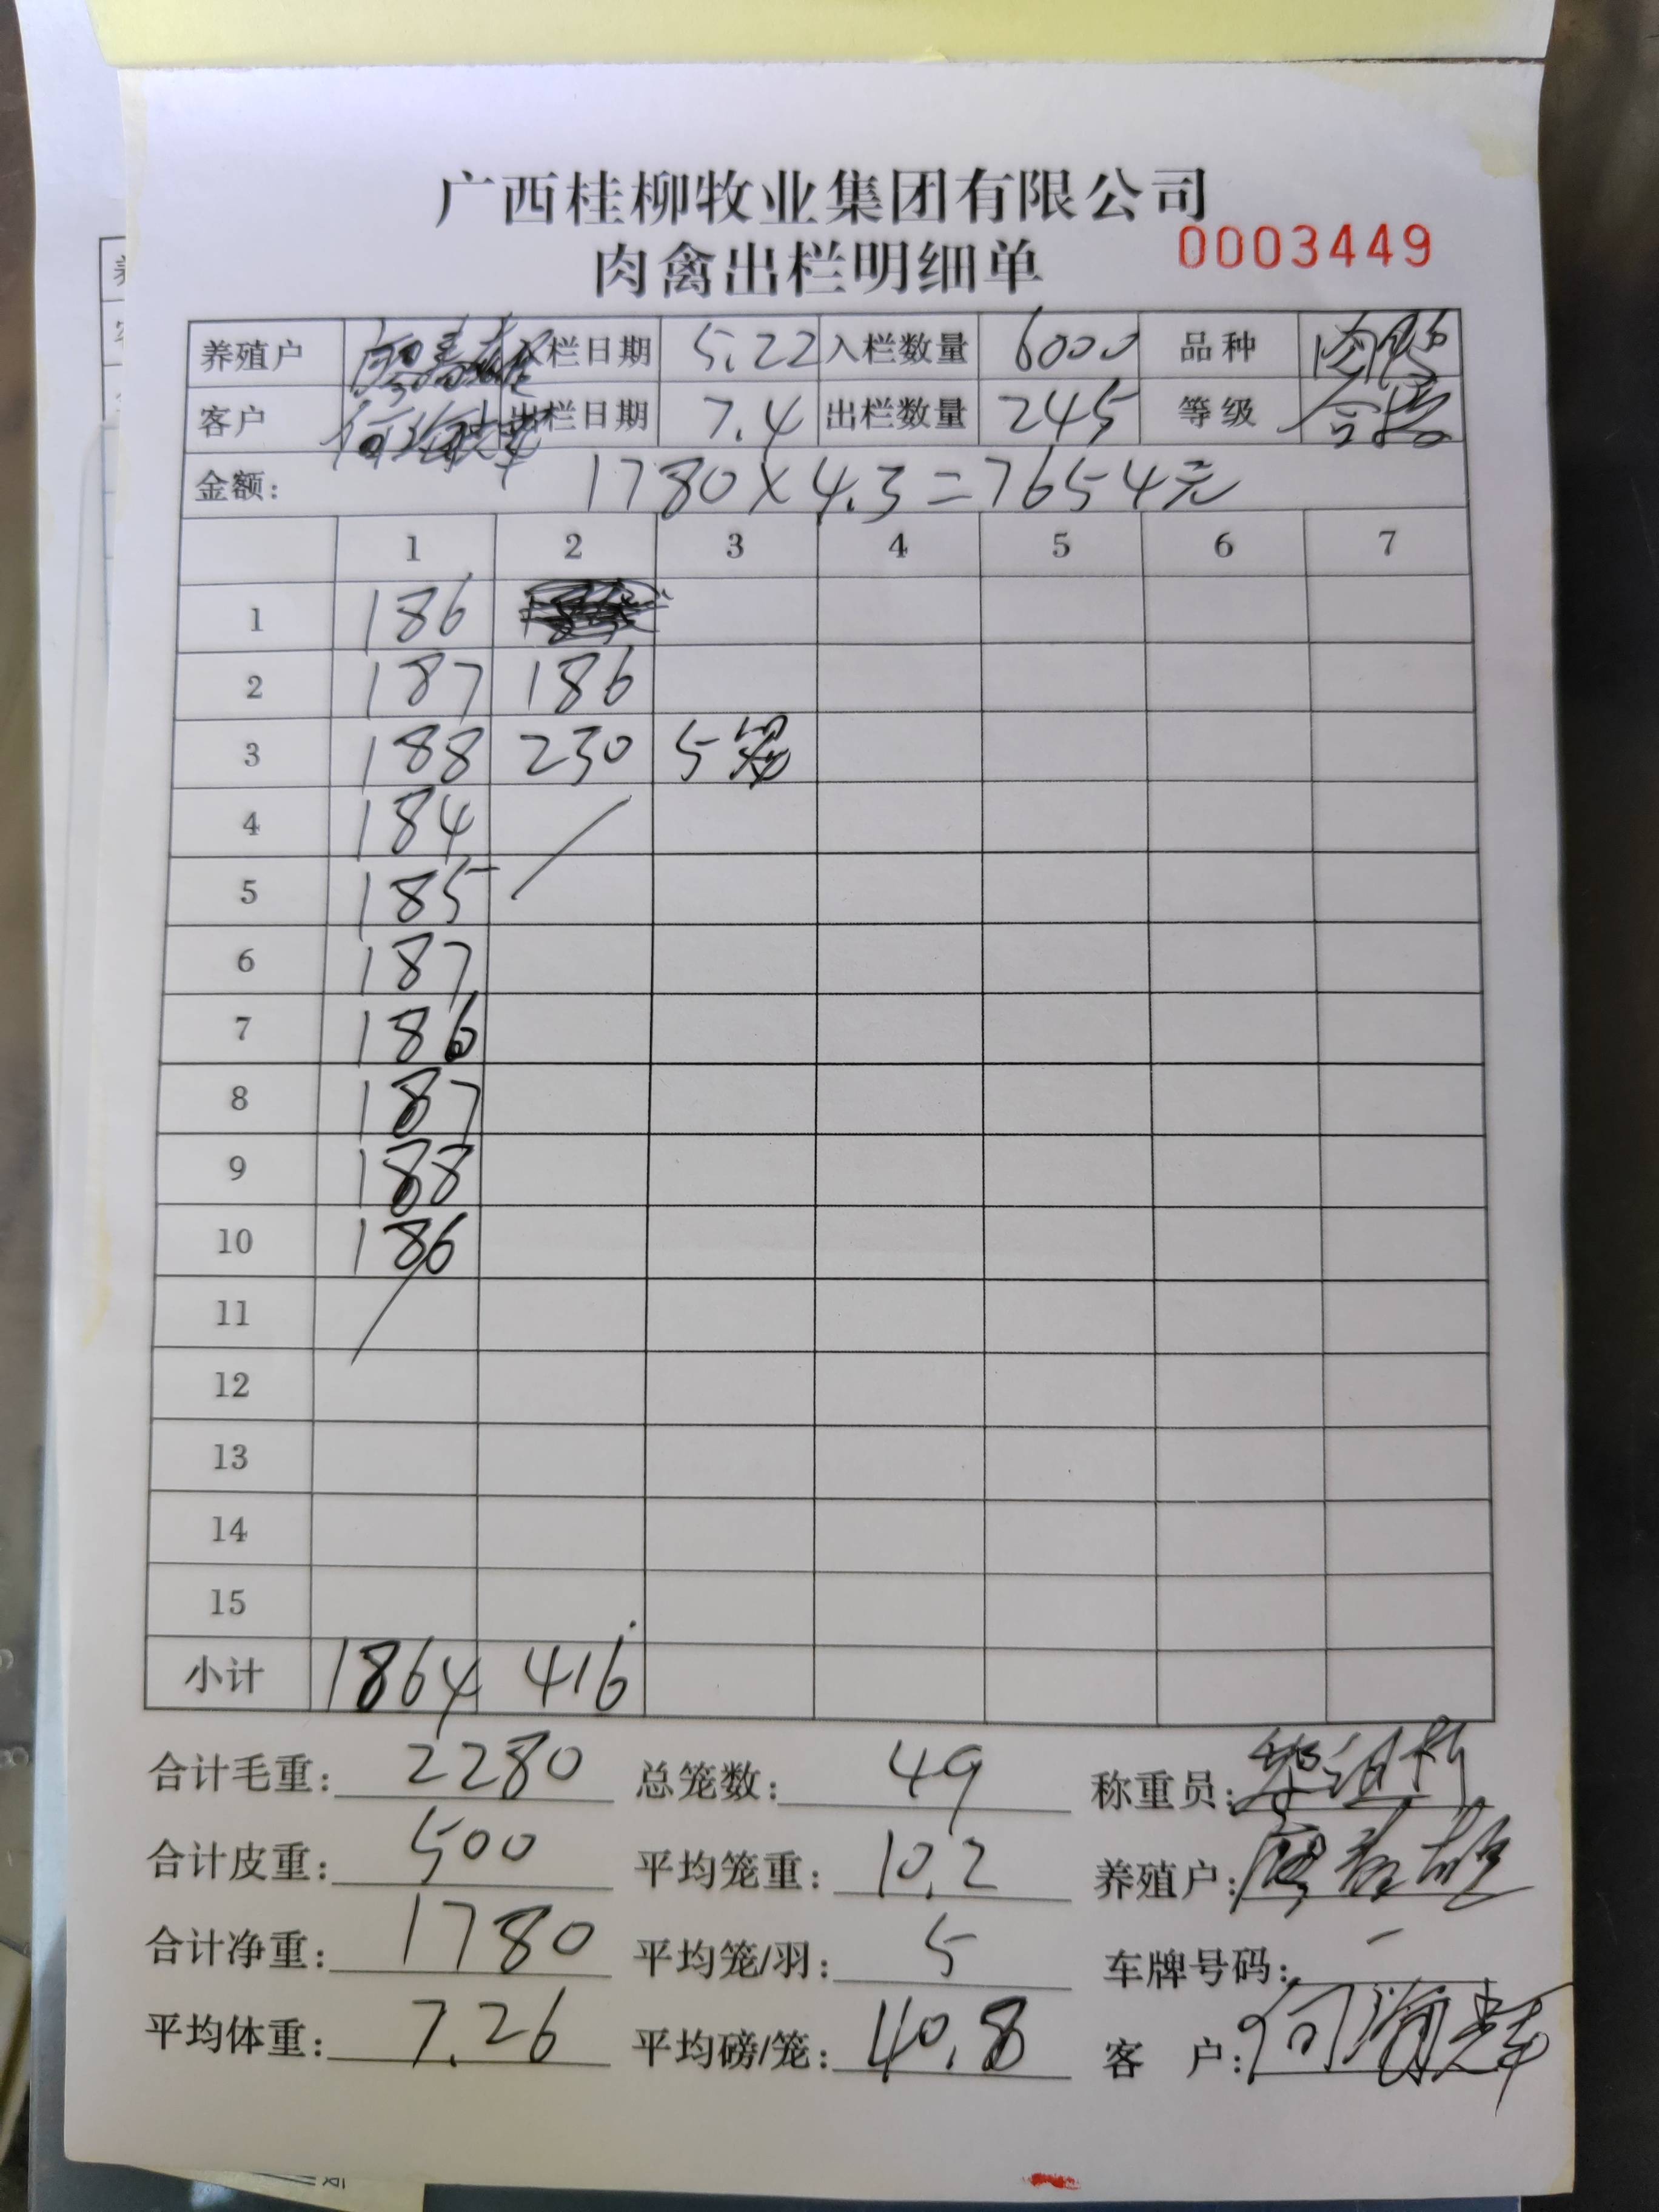 广西桂柳牧业集团有限公司
肉禽出栏明细单 0003449
养殖户 入栏日期 5.22 入栏数量 6000 品种 肉鸭
客户 何海辉 出栏日期 7.4 出栏数量 245 等级 合格
金额: 1780×4.3=7654元
1 2 3 4 5 6 7
1 186
2 187 186
3 188 230 5笼
4 184
5 185
6 187
7 186
8 187
9 188
10 186
11
12
13
14
15
小计 1864 416
合计毛重: 2280 总笼数: 49 称重员:
合计皮重: 500 平均笼重: 10.2 养殖户:
合计净重: 1780 平均笼/羽: 5 车牌号码: -
平均体重: 7.26 平均磅/笼: 40.8 客 户: 何海辉